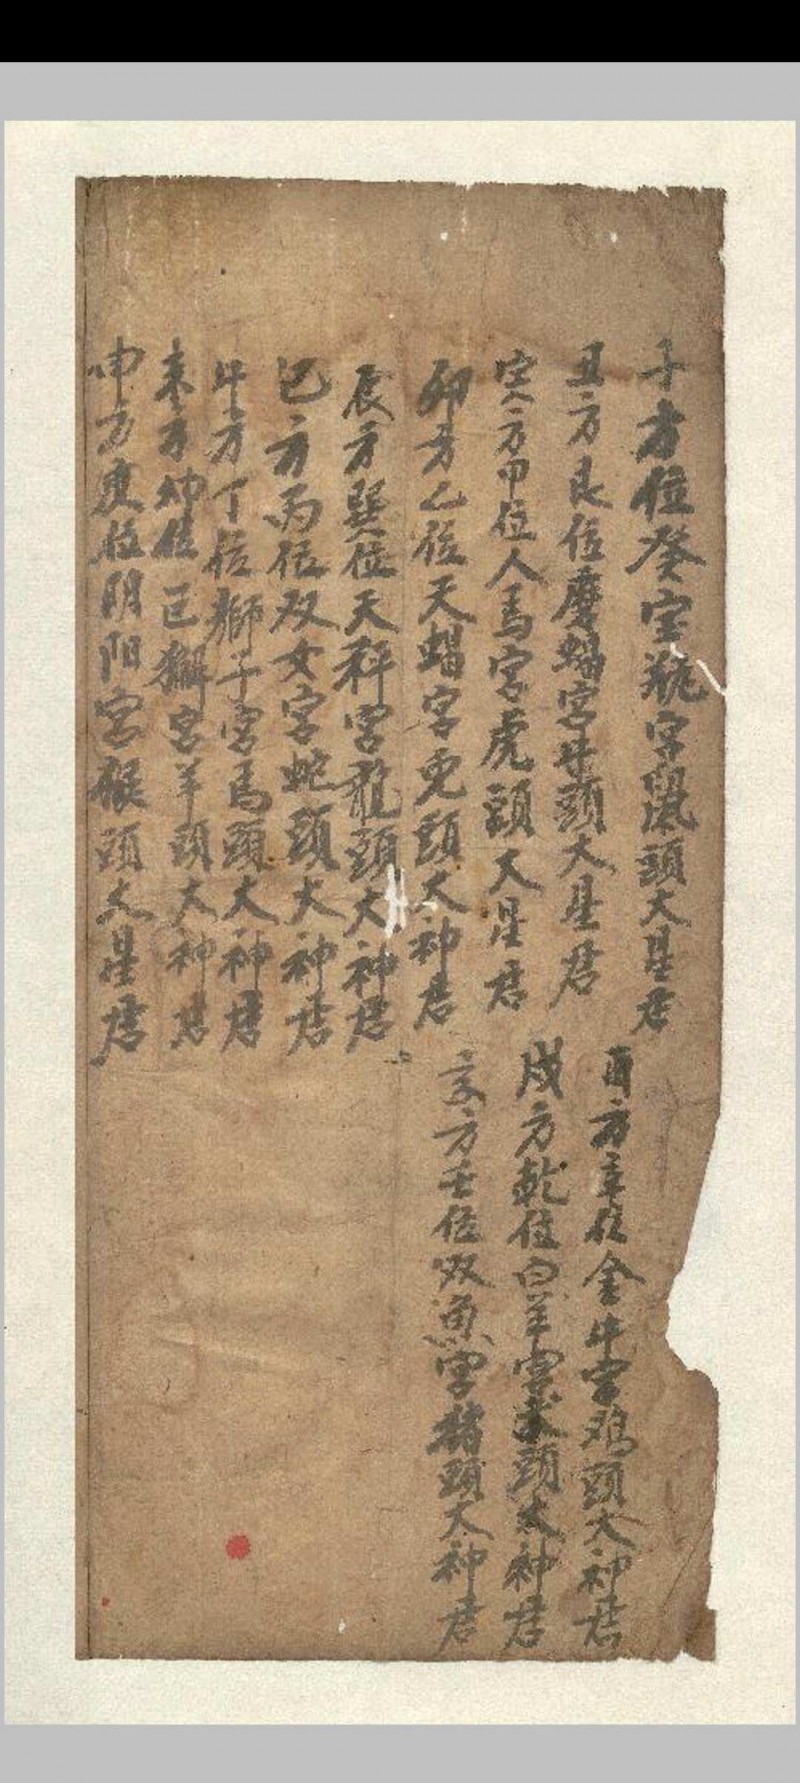 子方位癸宝瓶宮鼠頭大星君
丑方艮位磨蝎宮牛頭大星君
寅方甲位人馬宮虎頭大星君
卯方乙位天蝎宮兎頭大神君
辰方巽位天秤宮龍頭大神君
巳方丙位双女宮蛇頭大神君
午方丁位獅子宮馬頭大神君
未方坤位巨獬宮羊頭大神君
申方庚位阴阳宮猴頭大星君
酉方辛位金牛宮鸡頭大神君
戍方乾位白羊宮頭大神君
亥方壬位双魚宮猪頭大神君